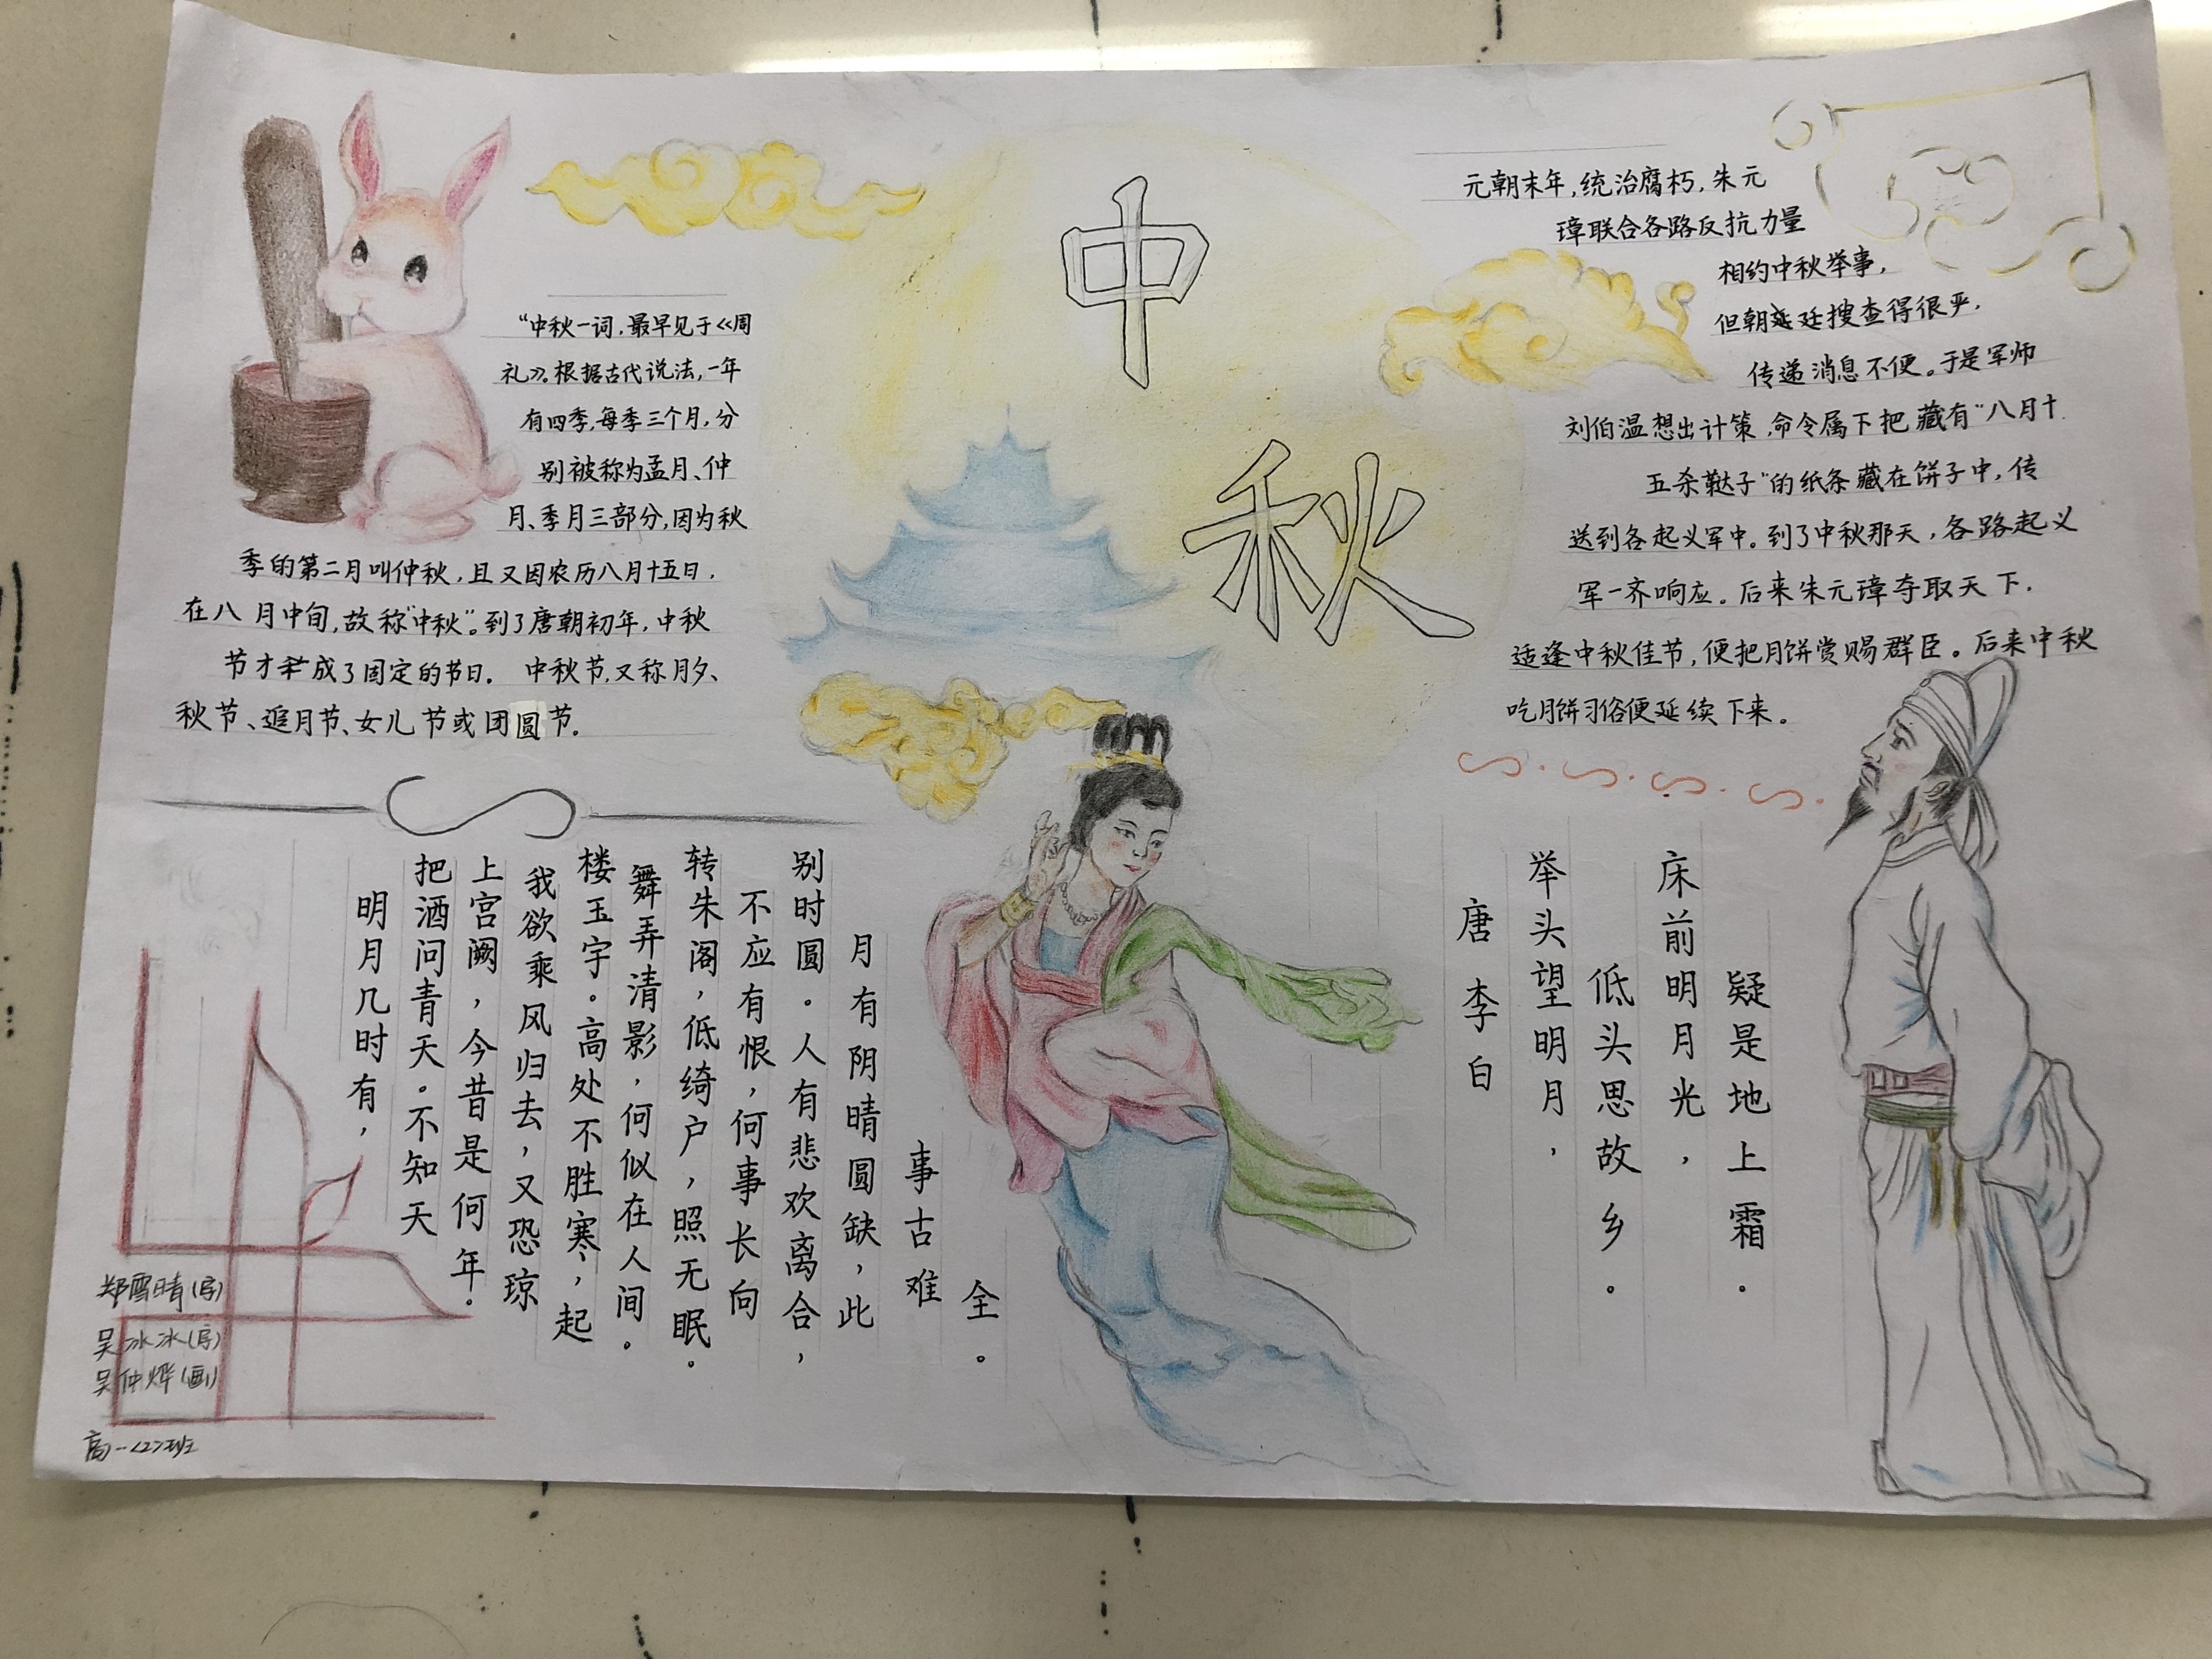 中
秋
“中秋一词，最早见于《周
礼》。根据古代说法，一年
有四季，每季三个月，分
别被称为孟月、仲
月、季月三部分，因为秋
季的第二月叫仲秋，且又因农历八月十五日，
在八月中旬，故称“中秋”。到了唐朝初年，中秋
节才成了固定的节日。 中秋节，又称月夕、
秋节、追月节、女儿节或团圆节。
元朝末年，统治腐朽，朱元
璋联合各路反抗力量
相约中秋举事，
但朝廷搜查得很严，
传递消息不便。于是军师
刘伯温想出计策，命令属下把藏有“八月十
五杀鞑子”的纸条藏在饼子中，传
送到各起义军中。到了中秋那天，各路起义
军一齐响应。后来朱元璋夺取天下，
适逢中秋佳节，便把月饼赏赐群臣。后来中秋
吃月饼习俗便延续下来。
明月几时有，
把酒问青天。不知天
上宫阙，今昔是何年。
我欲乘风归去，又恐琼
楼玉宇。高处不胜寒，起
舞弄清影，何似在人间。
转朱阁，低绮户，照无眠。
不应有恨，何事长向
别时圆。人有悲欢离合，
月有阴晴圆缺，此
事古难
全。
床前明月光，
疑是地上霜。
举头望明月，
低头思故乡。
唐 李白
郑雪晴（字）
吴冰冰（字）
吴仲烨（画）
高一<2>班